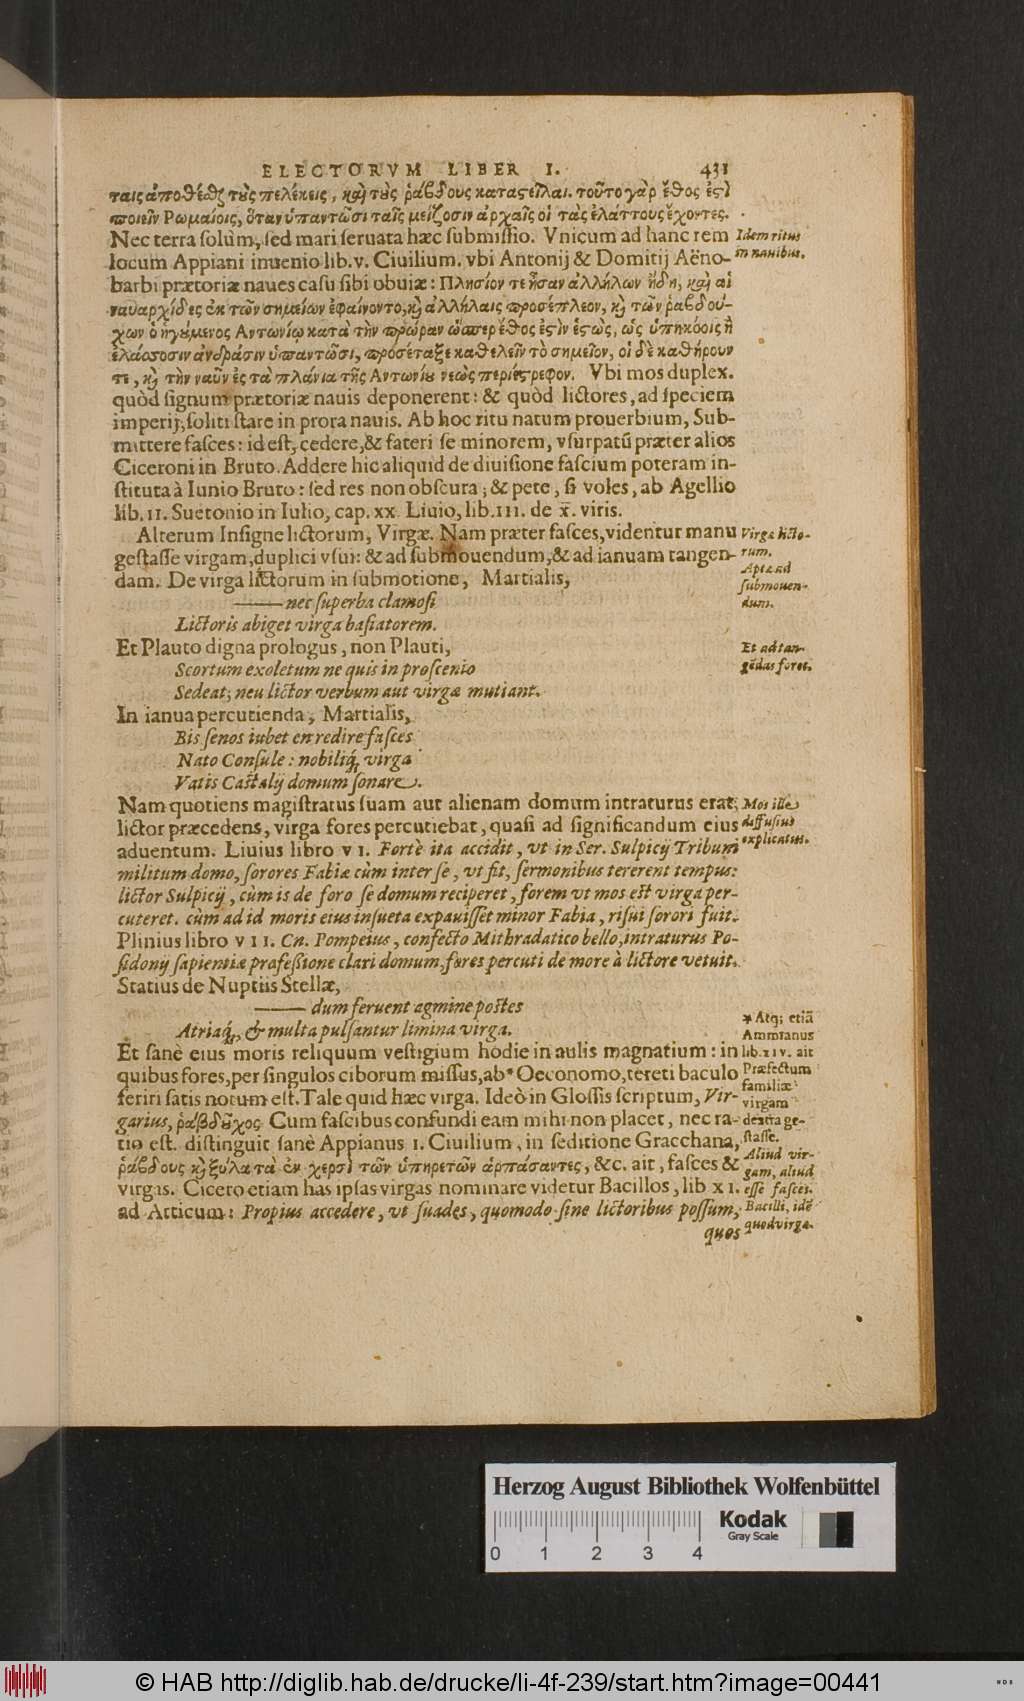 ELECTORVM LIBER I. 431
ταις ἀποθέσθαι τοὺς πελέκεις, καὶ τοὺς ῥάβδους καταστεῖλαι. τοῦτο γὰρ ἔθος ἐστὶ
ποιεῖν Ρωμαίοις, ὅταν ὑπαντῶσι ταῖς μείζοσιν ἀρχαῖς οἱ τὰς ἐλάττους ἔχοντες.
Nec terra ſolùm, ſed mari ſeruata hæc ſubmiſſio. Vnicum ad hanc rem
Idem ritus
in nauibus.
locum Appiani inuenio lib. v. Ciuilium. vbi Antonij & Domitij Aëno-
barbi prætoriæ naues caſu ſibi obuiæ: Πλησίον τε ἦσαν ἀλλήλων ἤδη, καὶ αἱ
ναυαρχίδες ἐκ τῶν σημείων ἐφαίνοντο, καὶ ἀλλήλαις προσέπλεον, καὶ τῶν ῥαβδού-
χων ὁ ἡγούμενος Αντωνίῳ κατὰ τὴν πρώραν ὥσπερ ἔθος ἐστὶν ἑστὼς, ὡς ὑπηκόοις ἢ
ἐλάσσοσιν ἀνδράσιν ὑπαντῶσι, προσέταξε καθελεῖν τὸ σημεῖον, οἱ δὲ καθήρουν
τε, καὶ τὴν ναῦν ἐς τὰ πλάγια τῆς Αντωνίου νεὼς περιέστρεφον. Vbi mos duplex.
quòd ſignum prætoriæ nauis deponerent: & quòd lictores, ad ſpeciem
imperij, ſoliti ſtare in prora nauis. Ab hoc ritu natum prouerbium, Sub-
mittere faſces: id eſt, cedere, & fateri ſe minorem, vſurpatũ præter alios
Ciceroni in Bruto. Addere hic aliquid de diuiſione faſcium poteram in-
ſtituta à Iunio Bruto: ſed res non obſcura; & pete, ſi voles, ab Agellio
lib. 11. Suetonio in Iulio, cap. xx. Liuio, lib. III. de x̅. viris.
Alterum Inſigne lictorum, Virgæ. Nam præter faſces, videntur manu
geſtaſſe virgam, duplici vſui: & ad ſubmouendum, & ad ianuam tangen-
dam. De virga lictorum in ſubmotione, Martialis,
Virga licto-
rum.
Apta ad
ſubmouen-
dum.
—— nec ſuperba clamoſi
Lictoris abiget virga baſiatorem.
Et Plauto digna prologus, non Plauti,
Et ad tan-
gẽdas fores.
Scortum exoletum ne quis in proſcenio
Sedeat; neu lictor verbum aut virgæ mutiant.
In ianua percutienda, Martialis,
Bis ſenos iubet en redire faſces
Nato Conſule: nobiliq́; virga
Vatis Caſtalij domum ſonare.
Nam quotiens magiſtratus ſuam aut alienam domum intraturus erat;
lictor præcedens, virga fores percutiebat, quaſi ad ſignificandum eius
aduentum. Liuius libro VI. Fortè ita accidit, vt in Ser. Sulpicij Tribuni
Mos ille
diffuſius
explicatus.
militum domo, ſorores Fabiæ cùm inter ſe, vt fit, ſermonibus tererent tempus:
lictor Sulpicij, cùm is de foro ſe domum reciperet, forem vt mos eſt virga per-
cuteret. cùm ad id moris eius inſueta expauiſſet minor Fabia, riſui ſorori fuit.
Plinius libro VII. Cn. Pompeius, confecto Mithradatico bello, intraturus Po-
ſidonij ſapientiæ profeſſione clari domum, fores percuti de more à lictore vetuit.
Statius de Nuptiis Stellæ,
—— dum feruent agmine poſtes
Atriaq́;, & multa pulſantur limina virga.
Et ſanè eius moris reliquum veſtigium hodie in aulis magnatium: in
quibus fores, per ſingulos ciborum miſſus, ab* Oeconomo, tereti baculo
feriri ſatis notum eſt. Tale quid hæc virga. Ideò in Gloſſis ſcriptum, Vir-
garius, ῥαβδοῦχος. Cum faſcibus confundi eam mihi non placet, nec ra-
tio eſt. diſtinguit ſanè Appianus I. Ciuilium, in ſeditione Gracchana,
ῥάβδους καὶ ξύλα τὰ ἐν χερσὶ τῶν ὑπηρετῶν ἁρπάσαντες, &c. ait, faſces &
virgas. Cicero etiam has ipſas virgas nominare videtur Bacillos, lib XI.
ad Atticum: Propius accedere, vt ſuades, quomodo ſine lictoribus poſſum,
* Atq; etiã
Ammianus
lib. XIV. ait
Præfectum
familiæ
virgam
dextra ge-
ſtaſſe.
Aliud vir-
gam, aliud
eſſe faſces.
Bacilli, idẽ
quod virga.
quos
Herzog August Bibliothek Wolfenbüttel
Kodak
Gray Scale
0 1 2 3 4
© HAB http://diglib.hab.de/drucke/li-4f-239/start.htm?image=00441